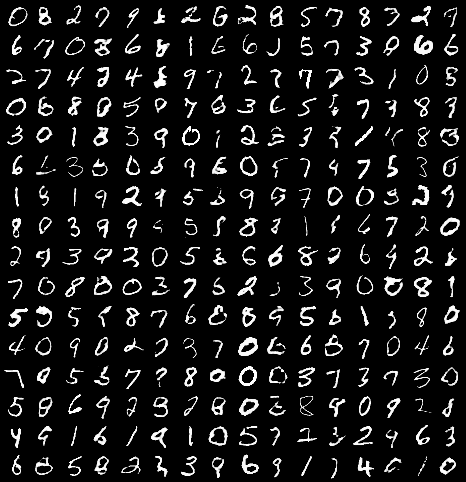 0 8 2 7 9 2 6 2 8 5 7 8 7 2 9
6 7 0 8 6 8 1 6 6 5 7 3 0 6 6
2 7 4 2 4 8 9 7 2 7 7 7 3 1 0 5
0 8 8 0 5 0 7 8 3 6 5 7 3 8 7
3 0 1 8 3 9 0 1 2 3 3 1 8 3
6 3 0 0 8 9 6 0 7 9 7 5 3 6
1 9 1 9 2 9 5 5 9 5 7 0 0 3 2 9
8 0 3 9 9 5 8 8 8 1 6 7 2 0
2 9 3 9 2 0 5 6 6 8 2 6 9 2
7 0 8 0 0 3 7 6 2 3 9 0 0 8 1
5 5 5 8 7 6 8 8 9 5 6 1 8 0
4 0 9 0 2 7 3 7 0 6 6 8 7 0 4 6
7 8 5 5 7 7 8 0 0 0 0 3 7 3 7 3 0
5 8 6 9 2 3 2 8 0 8 8 0 9 2 8
4 9 1 6 1 9 1 0 5 7 2 3 2 9 6 3
6 6 5 8 2 3 3 9 6 9 1 7 4 0 1 0